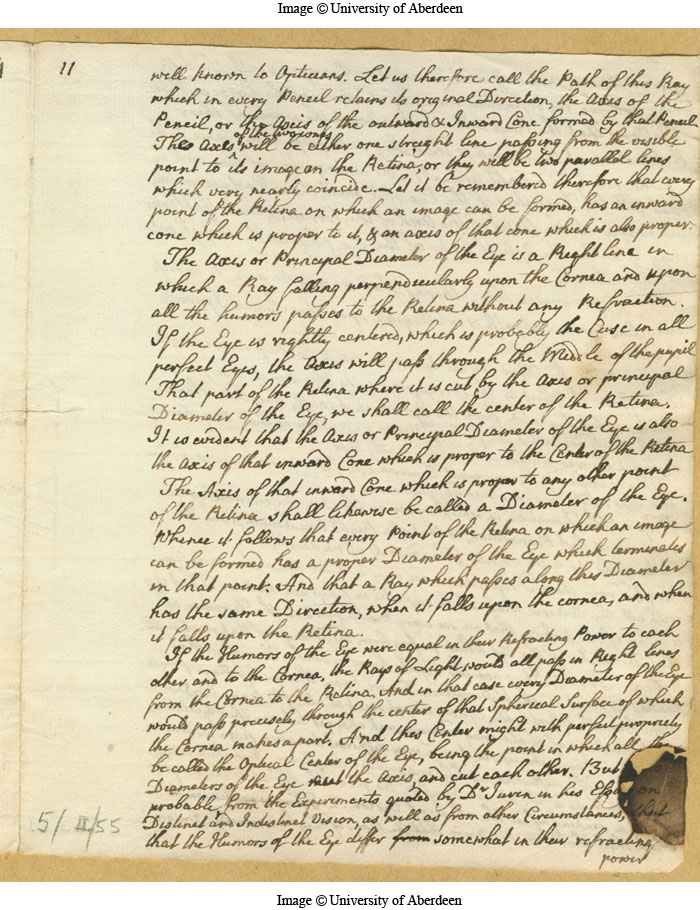 Image © University of Aberdeen
11
will known to Opticians. Let us therefore call the Path of this Ray
which in every Pencil retains its original Direction, the Axis of the
Pencil, or the Axis of the outward & Inward Cone formed by that Pencil
of the two cones
These Axes ^ will be either one streight line passing from the visible
point to its image on the Retina, or they will be two parallel lines
which very nearly coincide. Let it be remembered therefore that every
point of the Retina on which an image can be formed, has an inward
cone which is proper to it, & an axis of that cone which is also proper.
The Axis or Principal Diameter of the Eye is a Right line in
which a Ray falling perpendicularly upon the Cornea and upon
all the humors passes to the Retina without any Refraction.
If the Eye is rightly centered, which is probably the Case in all
perfect Eyes, the Axis will pass through the Middle of the pupil
That part of the Retina where it is cut by the Axis or principal
Diameter of the Eye, we shall call the center of the Retina.
It is evident that the Axis or Principal Diameter of the Eye is also
the Axis of that inward Cone which is proper to the Center of the Retina
The Axis of that inward Cone which is proper to any other point
of the Retina shall likewise be called a Diameter of the Eye.
Whence it follows that every Point of the Retina on which an image
can be formed has a proper Diameter of the Eye which terminates
in that point. And that a Ray which passes along this Diameter
has the same Direction, when it falls upon the cornea, and when
it falls upon the Retina.
If the Humors of the Eye were equal in their Refracting Power to each
other and to the Cornea, the Rays of Light would all pass in Right lines
from the Cornea to the Retina. And in that case every Diameter of the Eye
would pass precisely through the center of that Spherical Surface of which
the Cornea makes a part. And this Center might with perfect propriety
be called the Optical Center of the Eye, being the point in which all the
Diameters of the Eye the Axis, and cut each other. But
probable from the Experiments quoted by Dr Jurin in his Essay on
Distinct and Indistinct Vision, as well as from other Circumstances, that
that the Humors of the Eye differ from somewhat in their refracting
power
5/II/55
Image © University of Aberdeen